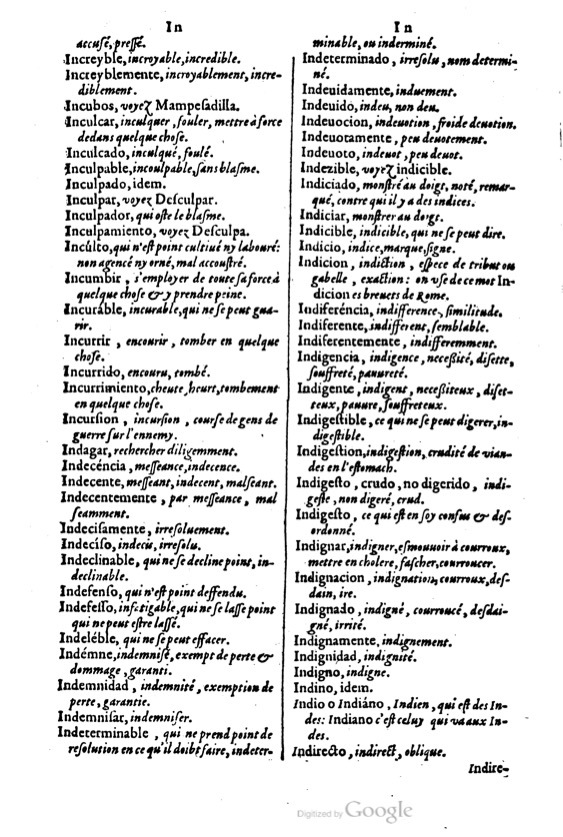 In
accusé, pressé.
Increyble, incroyable, incredible.
Increyblemente, incroyablement, incre-
diblement.
Incubos, voyez Mampesadilla.
Inculcar, inculquer, fouler, mettre à force
dedans quelque chose.
Inculcado, inculqué, foulé.
Inculpable, incoulpable, sans blasme.
Inculpado, idem.
Inculpar, voyez Desculpar.
Inculpador, qui oste le blasme.
Inculpamiento, voyez Desculpa.
Incúlto, qui n'est point cultiué ny labouré:
non agencé ny orné, mal accoustré.
Incumbir, s'employer de toute sa force à
quelque chose & y prendre peine.
Incuráble, incurable, qui ne se peut gua-
rir.
Incurrir, encourir, tomber en quelque
chose.
Incurrido, encouru, tombé.
Incurrimiento, cheute, heurt, tombement
en quelque chose.
Incursion, incursion, course de gens de
guerre sur l'ennemy.
Indagar, rechercher diligemment.
Indecéncia, messeance, indecence.
Indecente, messeant, indecent, malseant.
Indecentemente, par messeance, mal
seamment.
Indecisamente, irresoluement.
Indecíso, indecis, irresolu.
Indeclinable, qui ne se decline point, in-
declinable.
Indefenso, qui n'est point deffendu.
Indefesso, infatigable, qui ne se lasse point
qui ne peut estre lassé.
Indeléble, qui ne se peut effacer.
Indémne, indemnisé, exempt de perte &
dommage, garanti.
Indemnidad, indemnité, exemption de
perte, garantie.
Indemnisar, indemniser.
Indeterminable, qui ne prend point de
resolution en ce qu'il doibt faire, indeter-
In
minable, ou inderminé.
Indeterminado, irresolu, nom determi-
né.
Indeuidamente, induement.
Indeuido, indeu, non deu.
Indeuocion, indeuotion, froide deuotion.
Indeuotamente, peu deuotement.
Indeuoto, indeuot, peu deuot.
Indezible, voyez indicible.
Indiciado, monstré au doigt, noté, remar-
qué, contre qui il y a des indices.
Indiciar, monstrer au doigt.
Indicible, indicible, qui ne se peut dire.
Indicio, indice, marque, signe.
Indicion, indiction, espece de tribut ou
gabelle, exaction: on vse de ce mot In-
dicion es breuets de Rome.
Indiferéncia, indifference, similitude.
Indiferente, indifferent, semblable.
Indiferentemente, indifferemment.
Indigencia, indigence, necessité, disette,
souffreté, pauureté.
Indigente, indigent, necessiteux, diset-
teux, pauure, souffreteux.
Indigestible, ce qui ne se peut digerer, in-
digestible.
Indigestion, indigestion, crudité de vian-
des en l'estomach.
Indigesto, crudo, no digerido, indi-
geste, non digeré, crud.
Indigesto, ce qui est en soy confus & des-
ordonné.
Indignar, indigner, esmouuoir à courroux,
mettre en cholere, fascher, courroucer.
Indignacion, indignation, courroux, des-
dain, ire.
Indignado, indigné, courroucé, desdai-
gné, irrité.
Indignamente, indignement.
Indignidad, indignité.
Indigno, indigne.
Indino, idem.
Indio o Indiáno, Indien, qui est des In-
des: Indiano c'est celuy qui va aux In-
des.
Indirecto, indirect, oblique.
Indire-
Digitized by Google